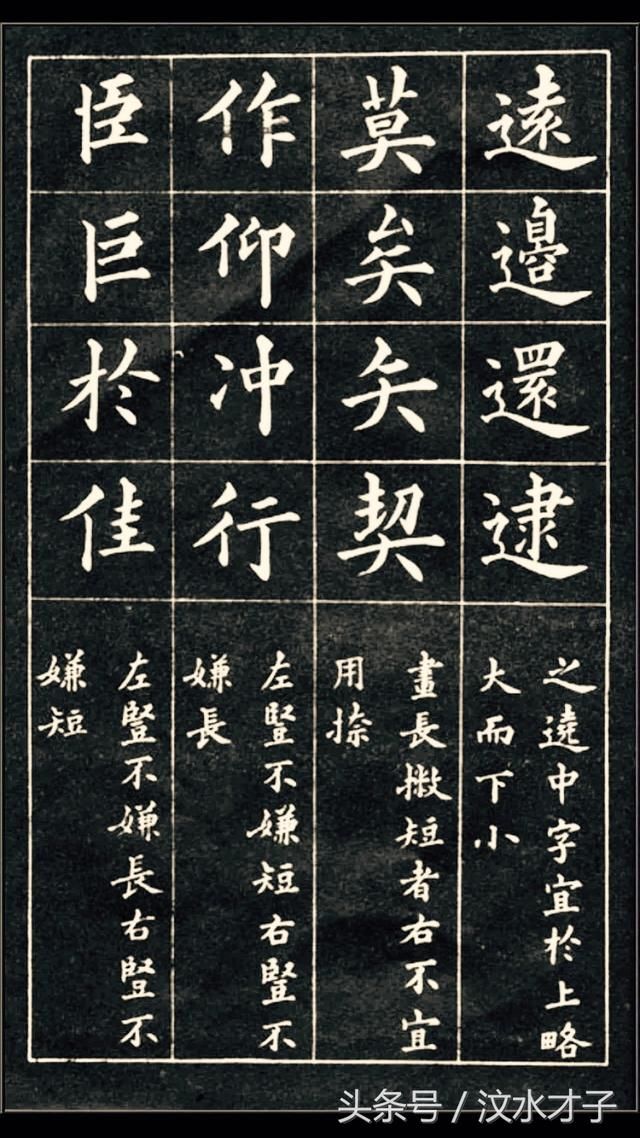 遠邊還逮
之遶中字宜於上略
大而下小
莫矣矢契
畫長撇短者右不宜
用捺
作仰冲行
左豎不嫌短右豎不
嫌長
臣巨於佳
左豎不嫌長右豎不
嫌短
头条号 / 汶水才子